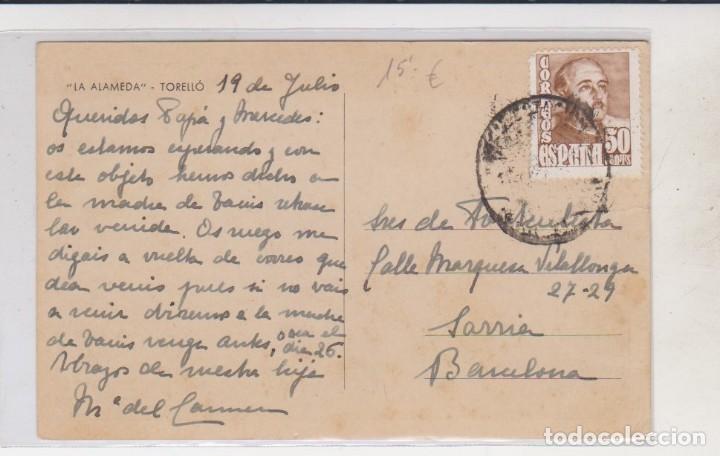 "LA ALAMEDA" - TORELLÓ 19 de Julio
Queridos Papá y Mercedes:
os estamos esperando y con
este objeto hemos dicho a
la madre de
la venida. Os ruego me
digais a vuelta de correo que
dea venis pues si no vais
a venir diremos a la madre
de venga antes, o sea el
dia 26.
Abrazos de vuestra hija
Mª del Carmen
15 €
CORREOS
ESPAÑA
50
CTS
Sres de
Calle Marquesa Vilallonga
27-29
Sarria
Barcelona
todocoleccion.net